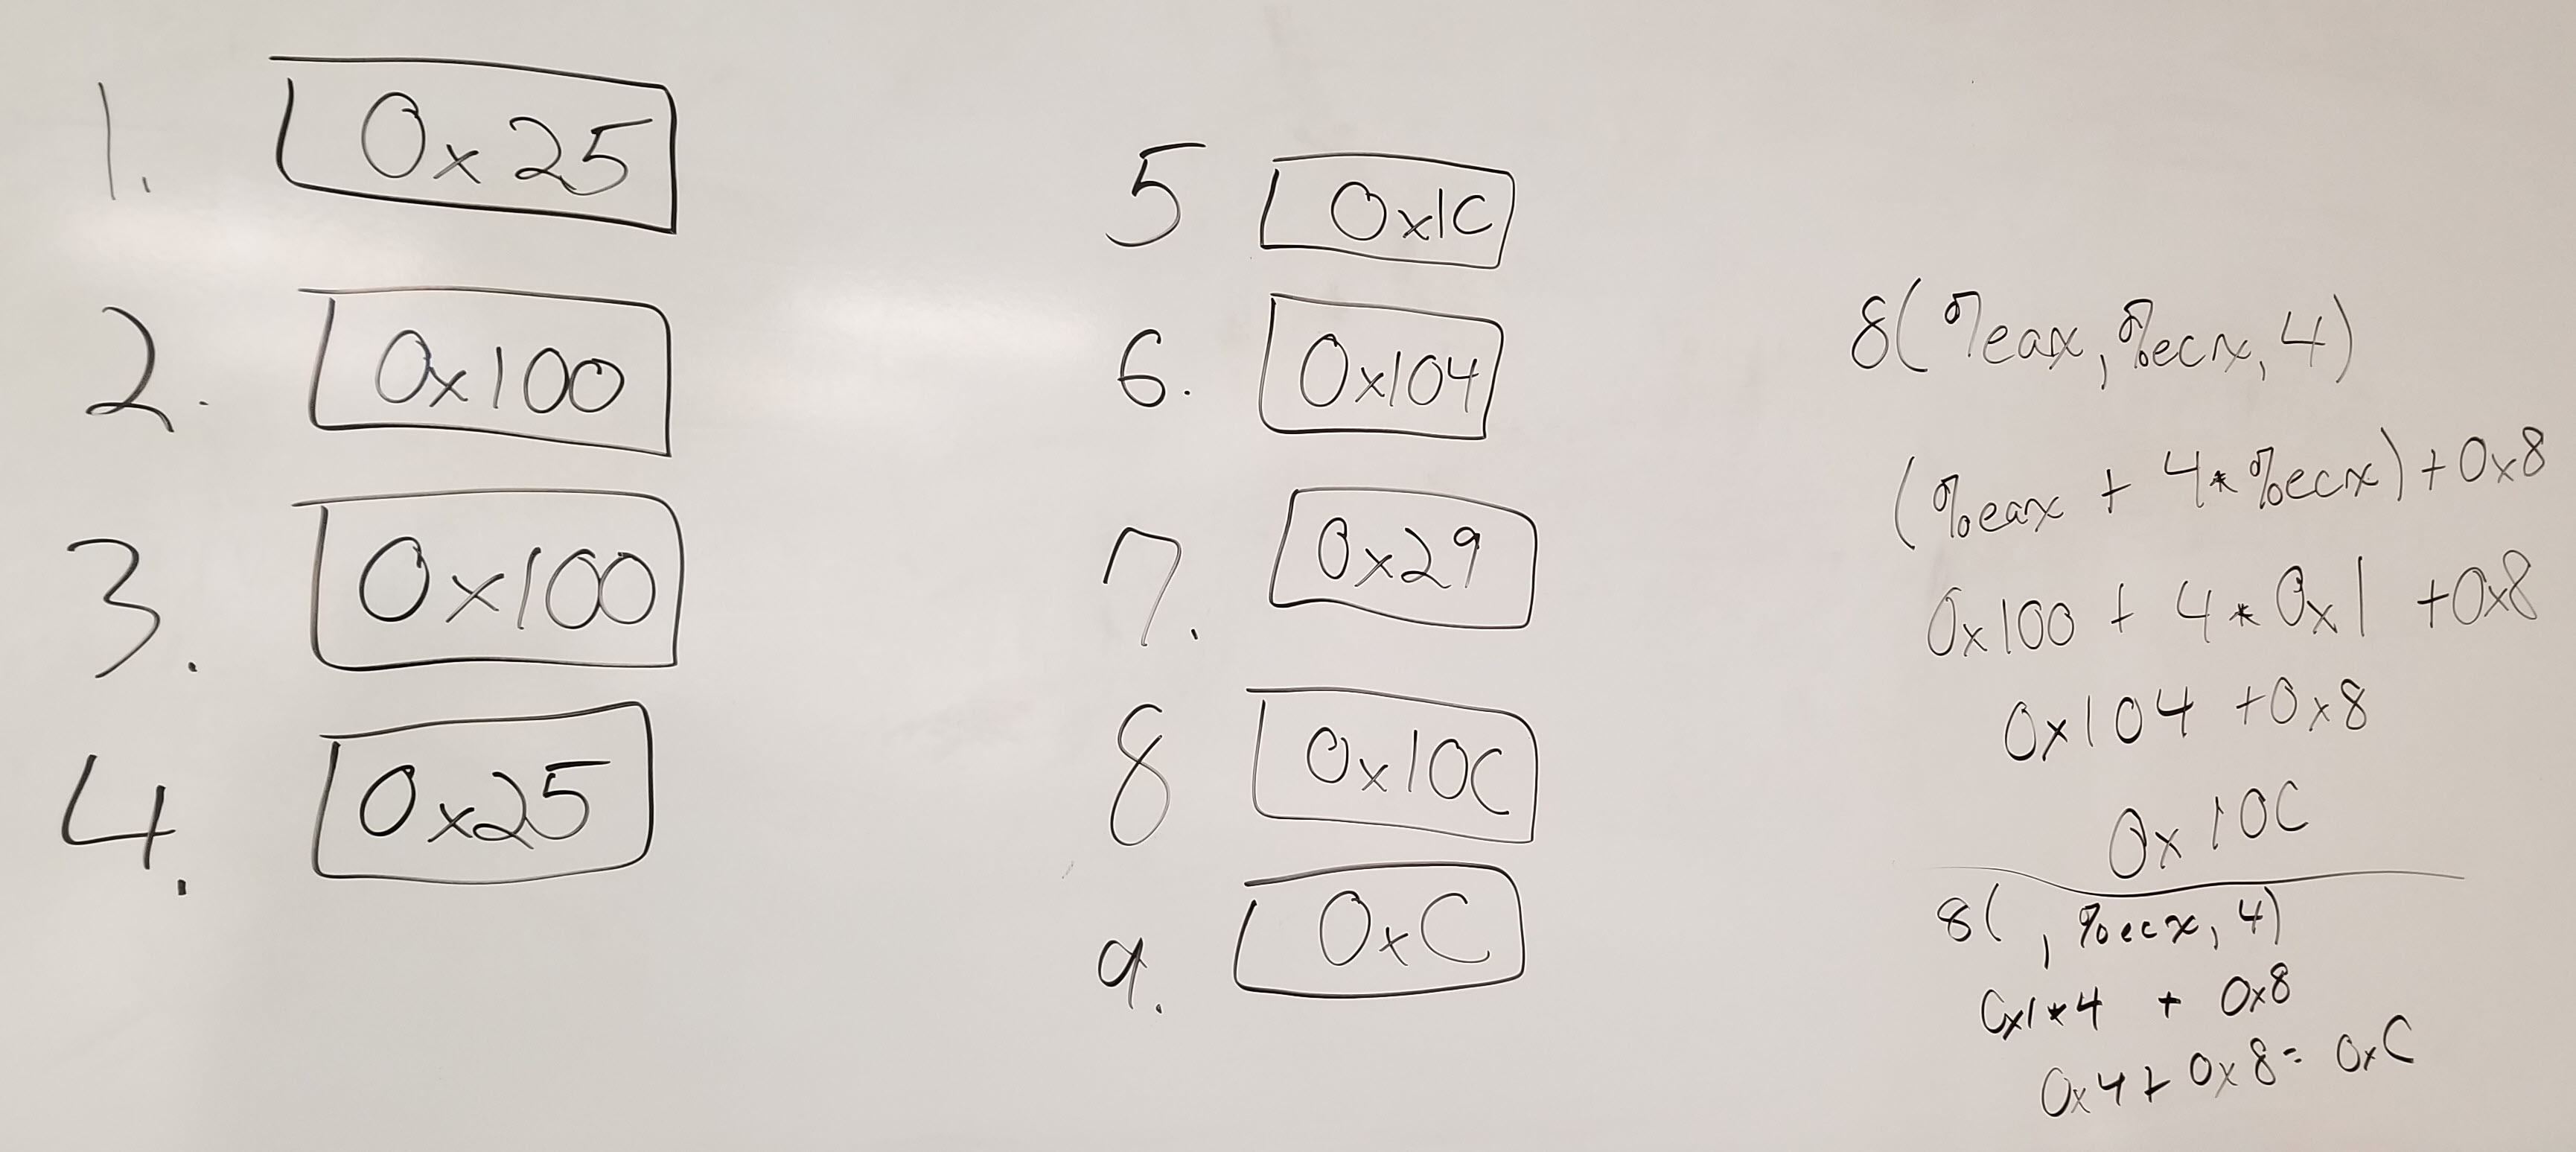 1. 0x25
2. 0x100
3. 0x100
4. 0x25
5 0x1C
6. 0x104
7. 0x29
8 0x10C
9. 0xC
8(%eax, %ecx, 4)
(%eax + 4*%ecx) + 0x8
0x100 + 4 * 0x1 + 0x8
0x104 + 0x8
0x10C
8( , %ecx, 4)
0x1*4 + 0x8
0x4 + 0x8 = 0xC